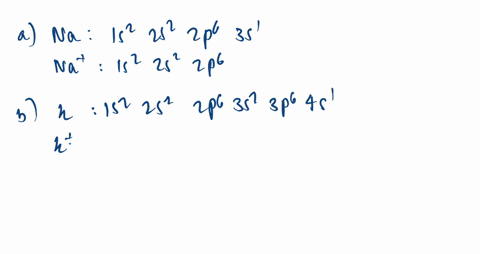 a) Na : 1s² 2s² 2p⁶ 3s¹
Na⁺ : 1s² 2s² 2p⁶
b) k : 1s² 2s² 2p⁶ 3s² 3p⁶ 4s¹
k⁺: